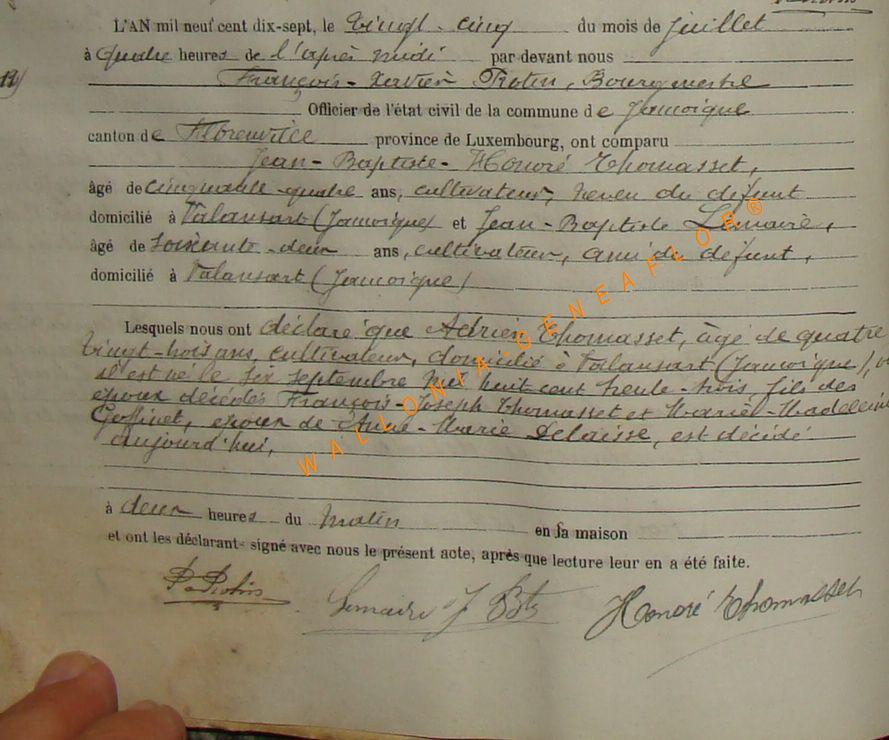 L'AN mil neuf cent dix-sept, le Vingt-cinq du mois de Juillet
à quatre heures de l'après midi par devant nous
François-Xavier Protin, Bourgmestre
Officier de l'état civil de la commune de Jamoigne
canton de Florenville province de Luxembourg, ont comparu
Jean-Baptiste-Honoré Thomasset,
âgé de cinquante-quatre ans, cultivateur, neveu du défunt
domicilié à Valansart (Jamoigne) et Jean-Baptiste Lemaire,
âgé de soixante-deux ans, cultivateur, ami du défunt,
domicilié à Valansart (Jamoigne)
Lesquels nous ont déclaré que Adrien Thomasset, âgé de quatre
vingt-trois ans, cultivateur, domicilié à Valansart (Jamoigne), où
il est né le six septembre mil huit cent trente-trois, fils des
époux décédés François-Joseph Thomasset et Marie-Madeleine
Goffinet, époux de Anne-Marie Delaisse, est décédé
aujourd'hui,
à deux heures du matin en sa maison
et ont les déclarants signé avec nous le présent acte, après que lecture leur en a été faite.
Lemaire J Bte Honoré Thomasset
WALLONIA-GENEAFLOR®